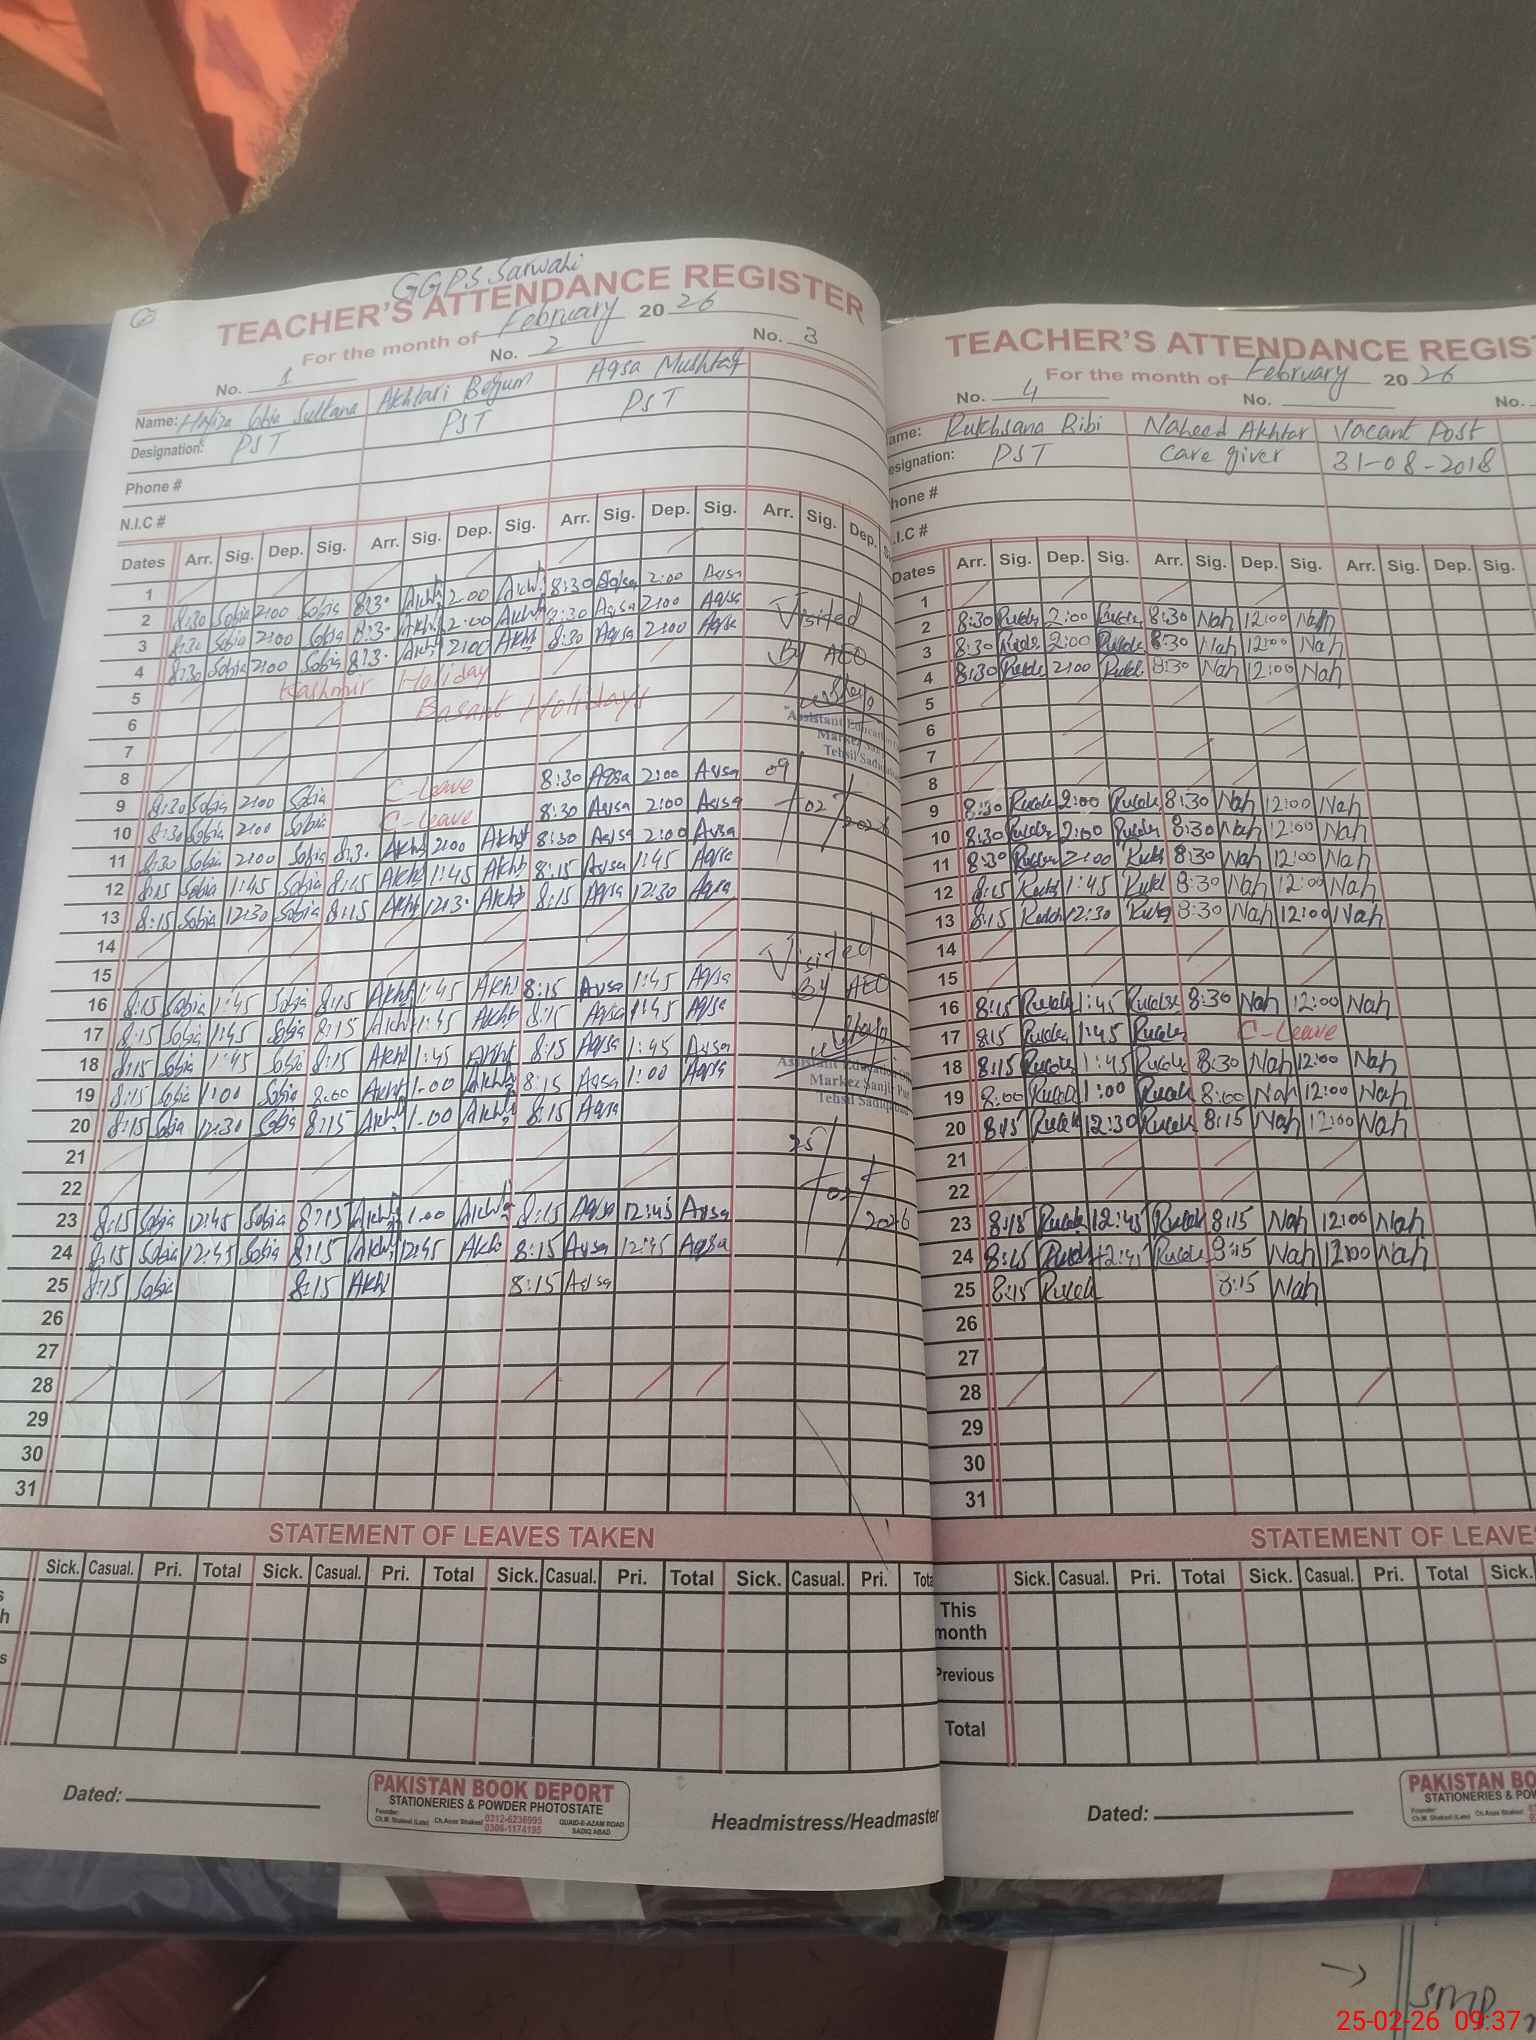 GGPS Sarwahi
TEACHER'S ATTENDANCE REGISTER
For the month of February 20 26
No. 1 No. 2 No. 3
Name: Hafiza Sobia Sultana Akhtari Begum Aqsa Mushtaq
Designation: PST PST PST
Phone #
N.I.C #
Dates Arr. Sig. Dep. Sig. Arr. Sig. Dep. Sig. Arr. Sig. Dep. Sig. Arr. Sig. Dep.
1
2 8:30 Sobia 2:00 Sobia 8:3. Akht 2:00 Akht 8:30 Aqsa 2:00 Aqsa
3 8:30 Sobia 2:00 Sobia 8:3. Akht 2:00 Akht 8:30 Aqsa 2:00 Aqsa Visited
4 8:30 Sobia 2:00 Sobia 8:3. Akht 2:00 Akht 8:30 Aqsa 2:00 Aqsa By AEO
5 Kashmir Holiday
6 Basant Holidays
Assistant Education
Markaz
Tehsil Sadiqabad
7
8
9 8:30 Sobia 2:00 Sobia C-leave 8:30 Aqsa 2:00 Aqsa 09/02/2026
10 8:30 Sobia 2:00 Sobia C-leave 8:30 Aqsa 2:00 Aqsa
11 8:30 Sobia 2:00 Sobia 8:3. Akht 2:00 Akht 8:30 Aqsa 2:00 Aqsa
12 8:15 Sobia 1:45 Sobia 8:15 Akht 1:45 Akht 8:15 Aqsa 1:45 Aqsa
13 8:15 Sobia 12:30 Sobia 8:15 Akht 12:3. Akht 8:15 Aqsa 12:30 Aqsa
14
15 Visited
16 8:15 Sobia 1:45 Sobia 8:15 Akht 1:45 Akht 8:15 Aqsa 1:45 Aqsa By AEO
17 8:15 Sobia 1:45 Sobia 8:15 Akht 1:45 Akht 8:15 Aqsa 1:45 Aqsa
18 8:15 Sobia 1:45 Sobi 8:15 Akht 1:45 Akht 8:15 Aqsa 1:45 Aqsa
Assistant Education
Markaz Sanjar Pur
Tehsil Sadiqabad
19 8:15 Sobia 1:00 Sobia 8:00 Akht 1.00 Akht 8:15 Aqsa 1:00 Aqsa
20 8:15 Sobia 12:30 Sobia 8:15 Akht 1.00 Akht 8:15 Aqsa
21
22
23 8:15 Sobia 12:45 Sobia 8:15 Akht 1.00 Akht 8:15 Aqsa 12:45 Aqsa 25/02/2026
24 8:15 Sobia 12:45 Sobia 8:15 Akht 12:45 Akht 8:15 Aqsa 12:45 Aqsa
25 8:15 Sobia 8:15 Akht 8:15 Aqsa
26
27
28
29
30
31
STATEMENT OF LEAVES TAKEN
Sick. Casual. Pri. Total Sick. Casual. Pri. Total Sick. Casual. Pri. Total Sick. Casual. Pri.
Dated:
PAKISTAN BOOK DEPORT
STATIONERIES & POWDER PHOTOSTATE
Founder:
Ch.M. Shakeel (Late) Ch.Anas Shakeel 0312-6236995 QUAID-E-AZAM ROAD
0306-1174195 SADIQ ABAD
Headmistress/Headmaster
TEACHER'S ATTENDANCE REGIST
For the month of February 20 26
No. 4 No. No.
ame: Rukhsana Bibi Naheed Akhtar Vacant Post
esignation: PST Care giver 31-08-2018
hone #
.I.C #
Dates Arr. Sig. Dep. Sig. Arr. Sig. Dep. Sig. Arr. Sig. Dep. Sig.
1
2 8:30 Rukh 2:00 Rukh 8:30 Nah 12:00 Nah
3 8:30 Rukh 2:00 Rukh 8:30 Nah 12:00 Nah
4 8:30 Rukh 2:00 Rukh 8:30 Nah 12:00 Nah
5
6
7
8
9 8:30 Rukh 2:00 Rukh 8:30 Nah 12:00 Nah
10 8:30 Rukh 2:00 Rukh 8:30 Nah 12:00 Nah
11 8:30 Rukh 2:00 Rukh 8:30 Nah 12:00 Nah
12 8:15 Rukh 1:45 Rukh 8:30 Nah 12:00 Nah
13 8:15 Rukh 12:30 Rukh 8:30 Nah 12:00 Nah
14
15
16 8:15 Rukh 1:45 Rukh 8:30 Nah 12:00 Nah
17 8:15 Rukh 1:45 Rukh C-Leave
18 8:15 Rukh 1:45 Rukh 8:30 Nah 12:00 Nah
19 8:00 Rukh 1:00 Rukh 8:00 Nah 12:00 Nah
20 8:15 Rukh 12:30 Rukh 8:15 Nah 12:00 Nah
21
22
23 8:15 Rukh 12:45 Rukh 8:15 Nah 12:00 Nah
24 8:15 Rukh 12:45 Rukh 8:15 Nah 12:00 Nah
25 8:15 Rukh 8:15 Nah
26
27
28
29
30
31
STATEMENT OF LEAVES
Sick. Casual. Pri. Total Sick. Casual. Pri. Total Sick.
This
month
Previous
Total
Dated:
PAKISTAN BO
STATIONERIES & POW
Founder:
Ch.M. Shakeel (Late) Ch.Anas Shakeel
SMP
25-02-26 09:37